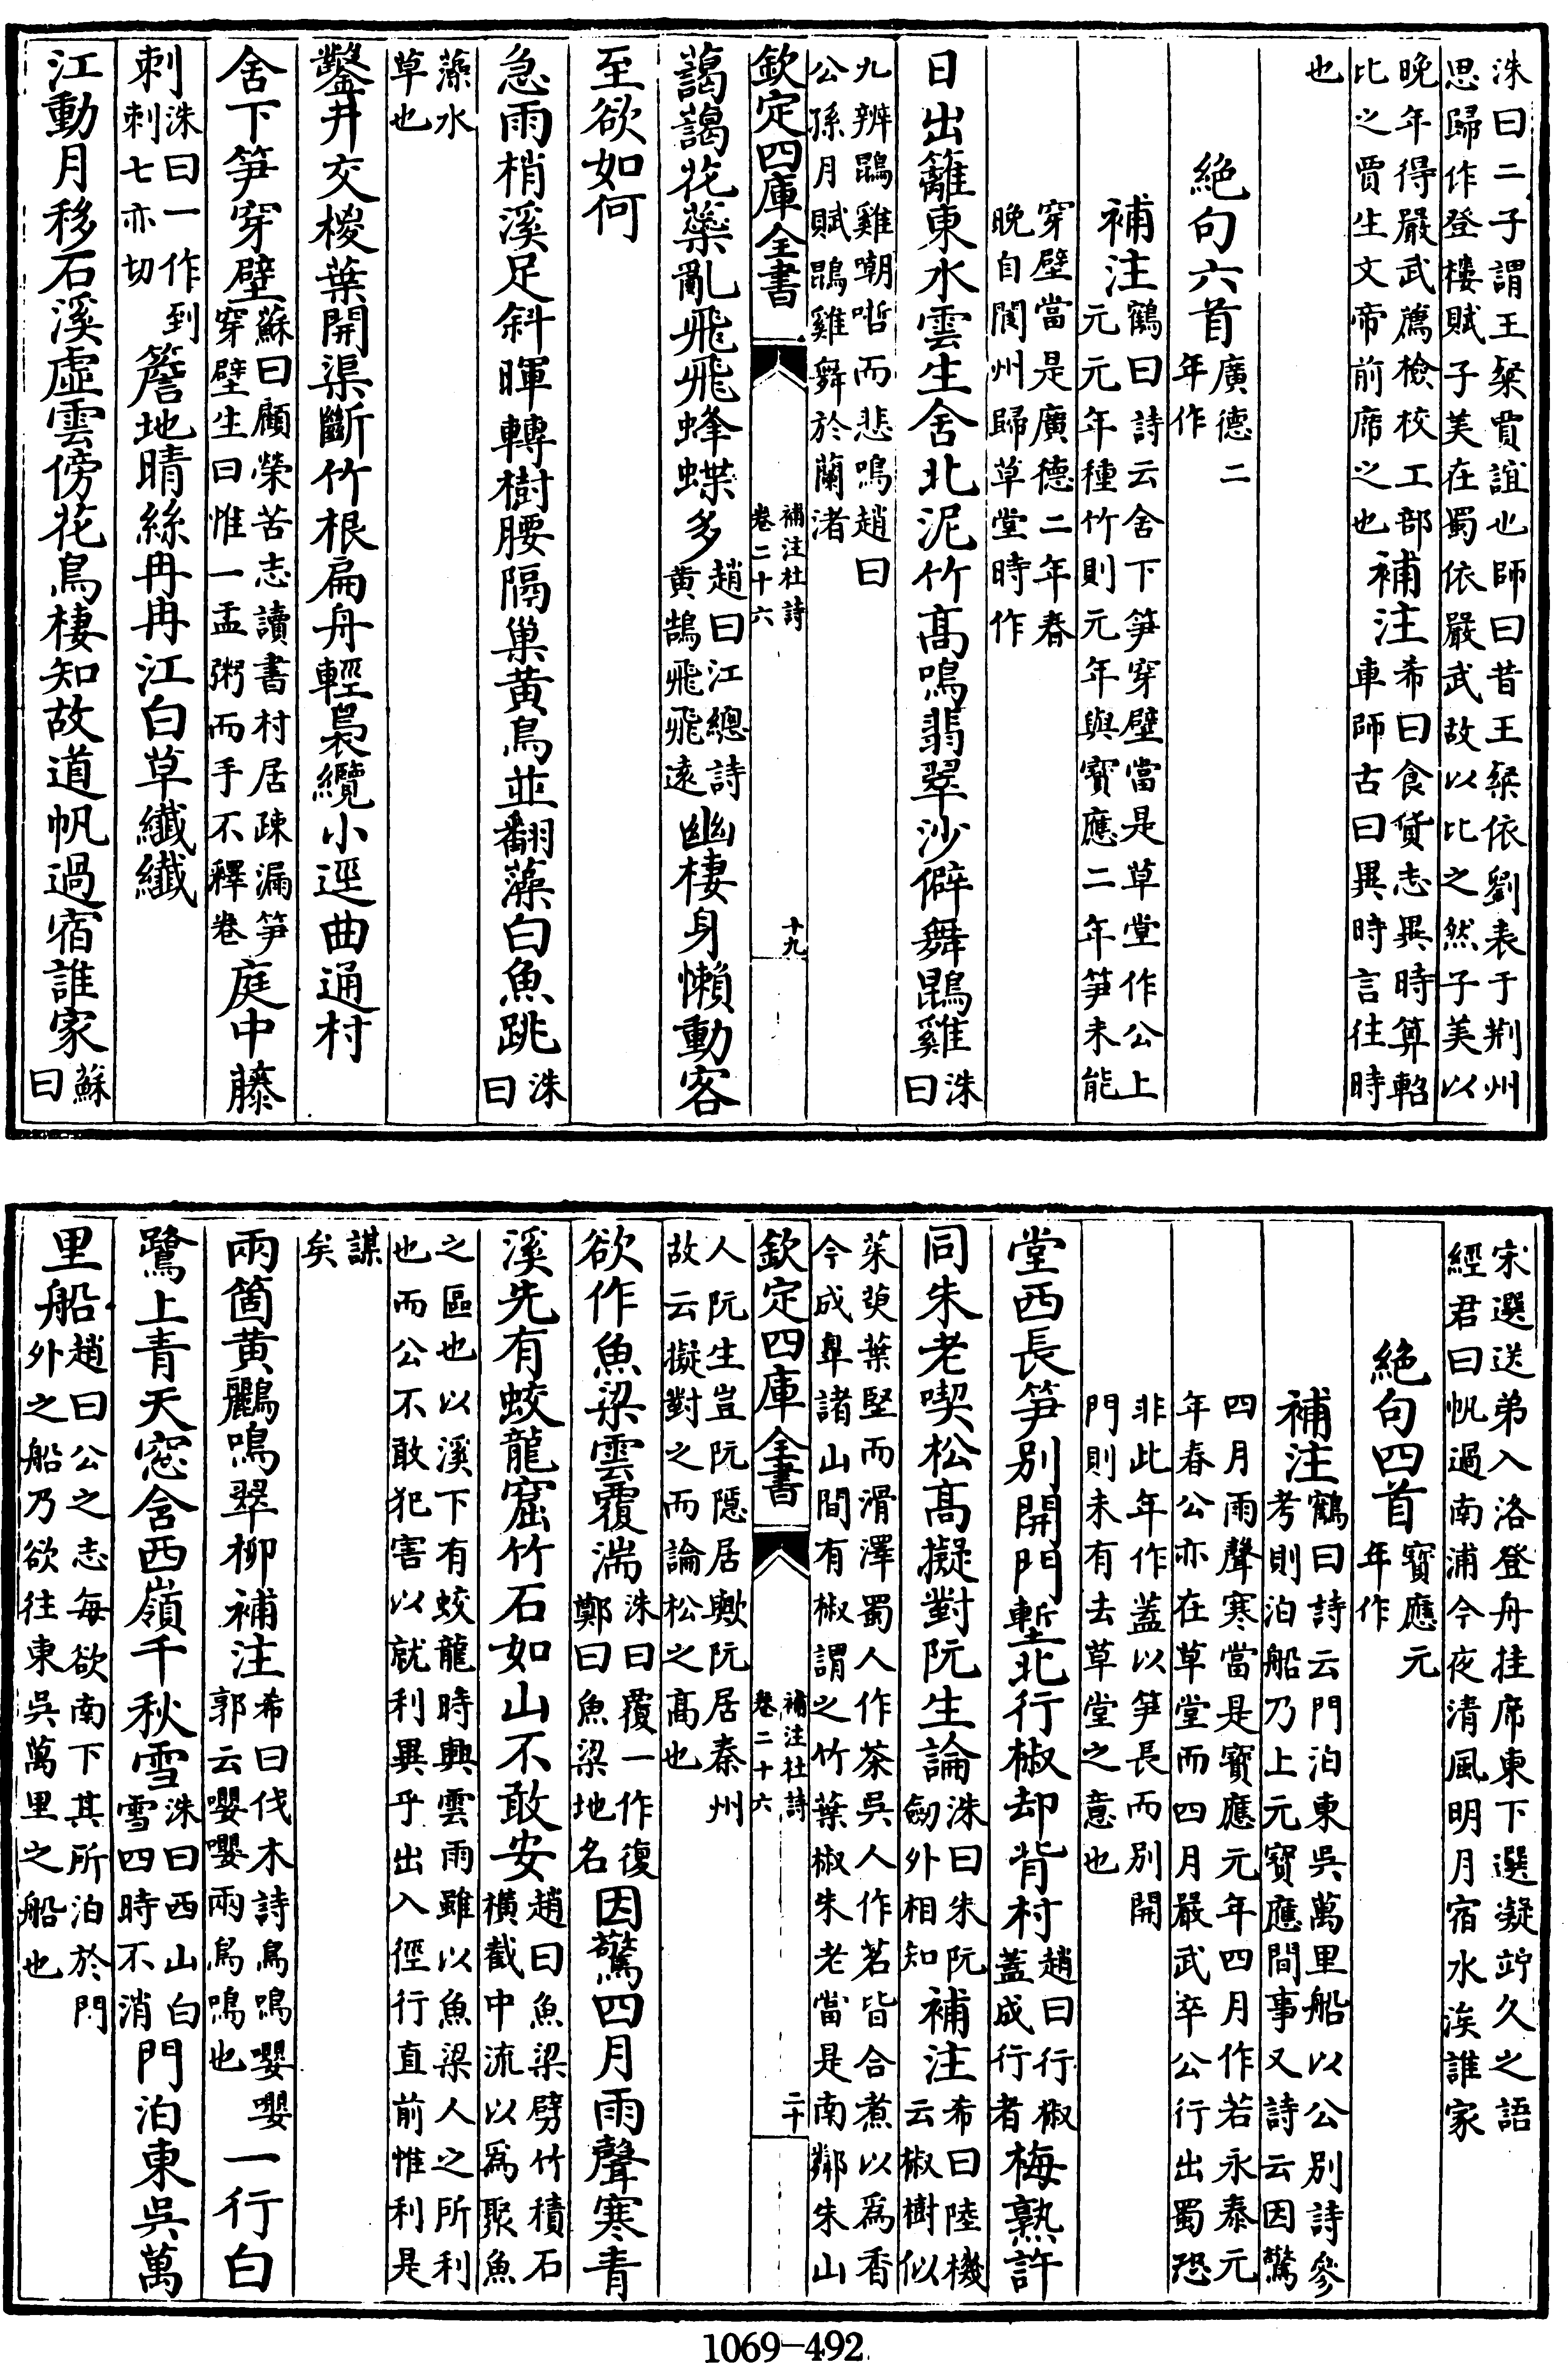 洙曰二子謂王粲賈誼也師曰昔王粲依劉表于荆州
思歸作登樓賦子美在蜀依嚴武故以比之然子美以
晚年得嚴武薦檢校工部比之賈生文帝前席之也補注希曰食貨志異時算軺車師古曰異時言往時
也
絶句六首廣德二年作
補注鶴曰詩云舍下笋穿壁當是草堂作公上元元年種竹則元年與寳應二年笋未能
穿壁當是廣德二年春
晚自閬州歸草堂時作
日出籬東水雲生舍北泥竹髙鳴翡翠沙僻舞鵾雞洙曰
九辨鵾雞嘲哳而悲鳴趙曰
公孫月賦鵾雞舞於蘭渚
欽定四庫全書 補注杜詩卷二十六 十九
藹藹花蘂亂飛飛蜂蝶多趙曰江總詩黄鵠飛飛遠幽棲身懶動客
至欲如何
急雨梢溪足斜暉轉樹腰隔巢黄鳥並翻藻白魚跳洙曰
藻水
草也
鑿井交椶葉開渠斷竹根扁舟輕褭纜小逕曲通村
舍下笋穿壁蘇曰顧榮苦志讀書村居疎漏笋穿壁生曰惟一盂粥而手不釋卷庭中藤
刺洙曰一作到刺七亦切簷地晴絲冉冉江白草纖纖
江動月移石溪虚雲傍花鳥棲知故道帆過宿誰家蘇曰
宋選送弟入洛登舟挂席東下選凝竚久之語
經君曰帆過南浦今夜清風明月宿水涘誰家
絶句四首寳應元年作
補注鶴曰詩云門泊東吳萬里船以公别詩參考則泊船乃上元寳應間事又詩云因驚
四月雨聲寒當是寳應元年四月作若永泰元
年春公亦在草堂而四月嚴武卒公行出蜀恐
非此年作蓋以笋長而别開
門則未有去草堂之意也
堂西長笋别開門塹北行椒却背村趙曰行椒蓋成行者梅熟許
同朱老喫松髙擬對阮生論洙曰朱阮劒外相知補注希曰陸機云椒樹似
茱萸葉堅而滑澤蜀人作茶吳人作茗皆合煮以為香
今成臯諸山間有椒謂之竹葉椒朱老當是南鄰朱山
欽定四庫全書 補注杜詩卷二十六 二十
人阮生豈阮隱居歟阮居秦州
故云擬對之而論松之髙也
欲作魚梁雲覆湍洙曰覆一作復鄭曰魚梁地名因驚四月雨聲寒青
溪先有蛟龍窟竹石如山不敢安趙曰魚梁劈竹積石横截中流以為聚魚
之區也以溪下有蛟龍時興雲雨雖以魚梁人之所利
也而公不敢犯害以就利異乎出入徑行直前惟利是
謀
矣
兩箇黄鸝鳴翠柳補注希曰伐木詩鳥鳴嚶嚶郭云嚶嚶兩鳥鳴也一行白
鷺上青天窓含西嶺千秋雪洙曰西山白雪四時不消門泊東吳萬
里船趙曰公之志每欲南下其所泊於門外之船乃欲往東吳萬里之船也
1069-492